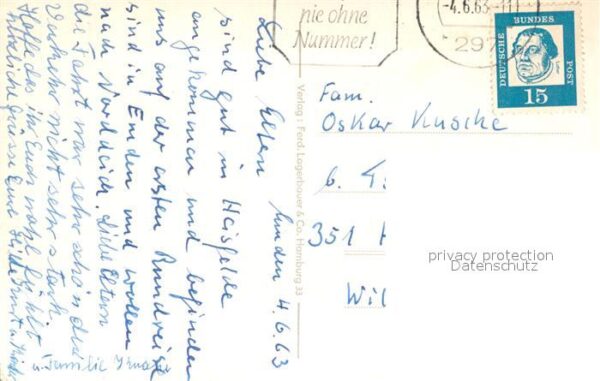 nie ohne
Nummer!
-4.6.63-
297
DEUTSCHE
BUNDES
POST
15
Fam.
Oskar Kuschc
b. T
351
Wil
privacy protection
Datenschutz
Verlag: Ferd. Lagerbauer & Co. Hamburg 33
Emden 4.6.63
Liebe Eltern
sind gut in Heisfelde
angekommen und befinden
uns auf der ersten Rundreise
sind in Emden und wollen
nach Norddeich. Liebe Eltern
die Fahrt war sehr schön der
Verkehr nicht sehr stark
Hoffe das ihr Euch wohl fühlt
Herzliche Grüsse Eure
u. Familie